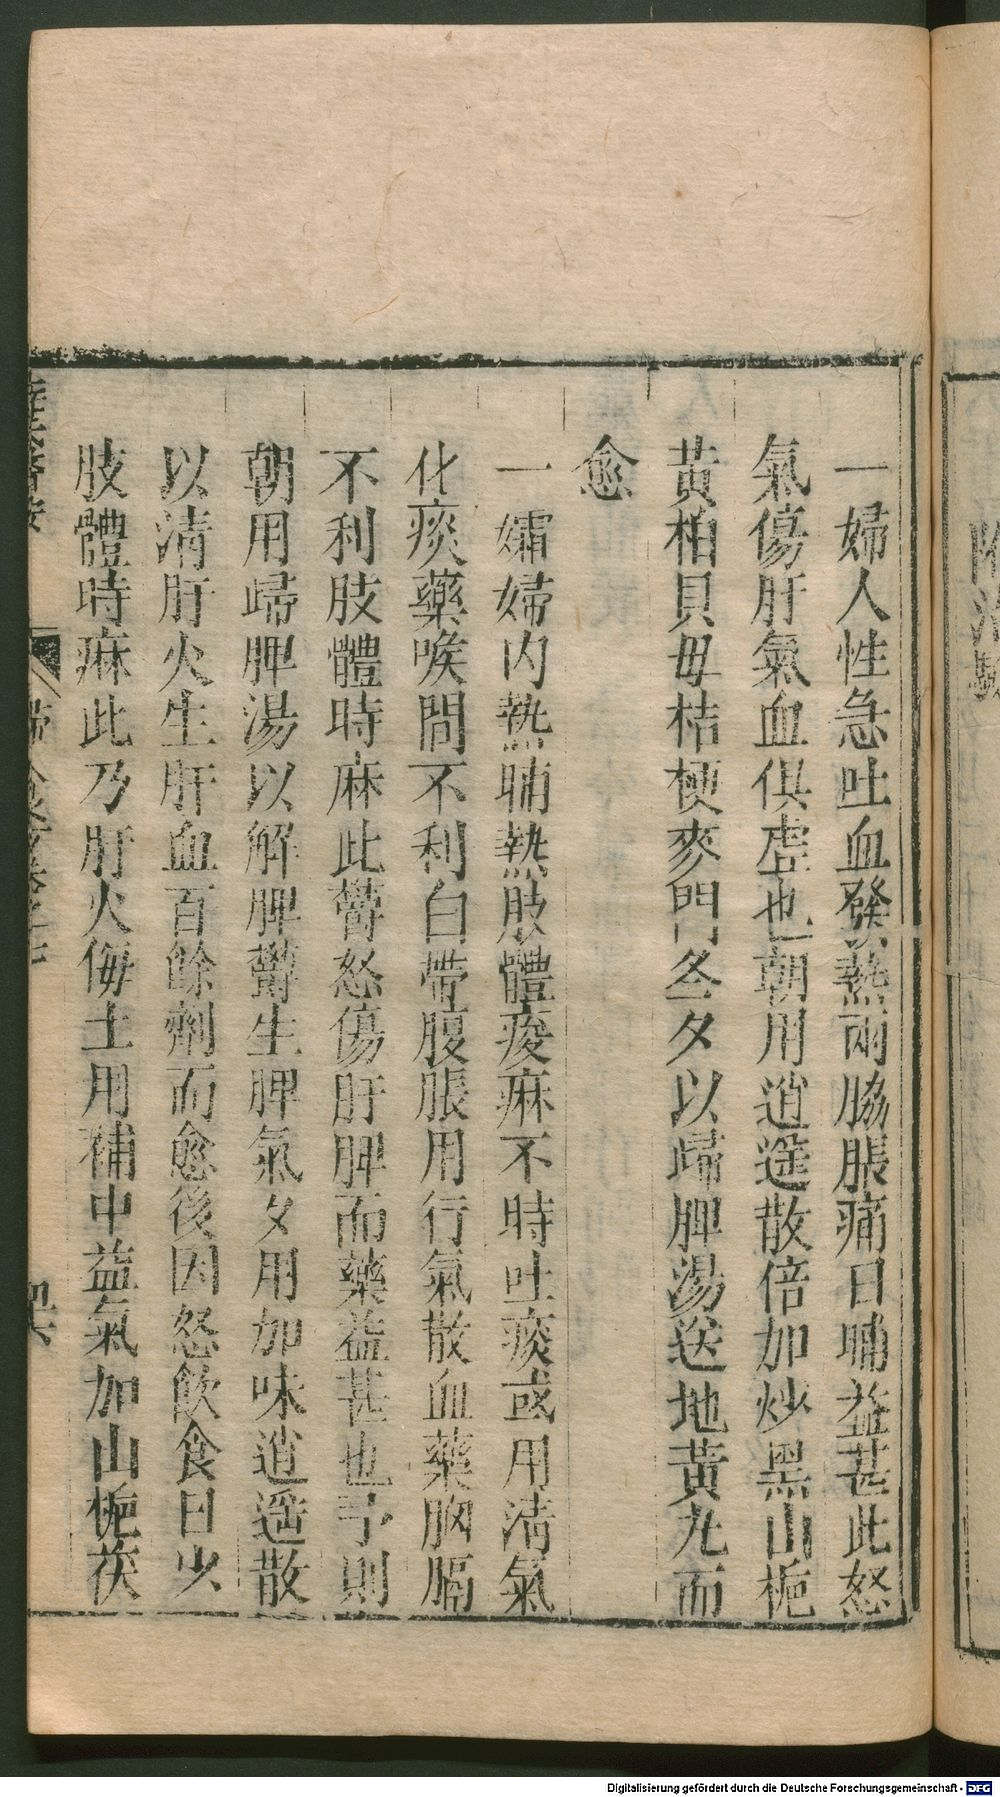 一婦人性急吐血發熱兩脇脹痛日晡益甚此怒
氣傷肝氣血俱虛也朝用逍遙散倍加炒黑山梔
黃柏貝毋桔梗麥門冬夕以歸脾湯送地黃丸而
愈
一孀婦内熱晡熱肢體痠麻不時吐痰或用淸氣
化痰藥喉間不利白帶腹脹用行氣散血藥胸膈
不利肢體時麻此鬱怒傷肝脾而藥益甚也予則
朝用歸脾湯以解脾鬱生脾氣夕用加味逍遙散
以淸肝火生肝血百餘劑而愈後因怒飲食日少
肢體時麻此乃肝火侮土用補中益氣加山梔茯
Digitalisierung gefördert durch die Deutsche Forschungsgemeinschaft - DFG